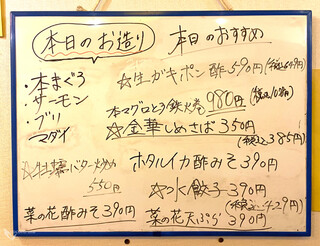 本日のお造り
・本まぐろ
・サーモン
・ブリ
マダイ
☆牡蠣バター炒め
550円
菜の花酢みそ390円
本日のおすすめ
☆生ガキポン酢590円(税込649円)
本マグロとろ鉄火巻980円
☆金華しめさば350円
(税込385円)
ホタルイカ酢みそ390円
☆水餃子390円
(税込429円)
菜の花天ぷら390円